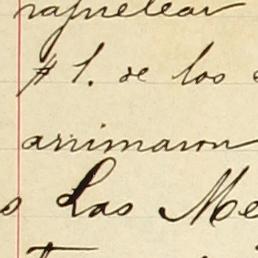 papelear
#1. de los
arrimaron
s Las Me